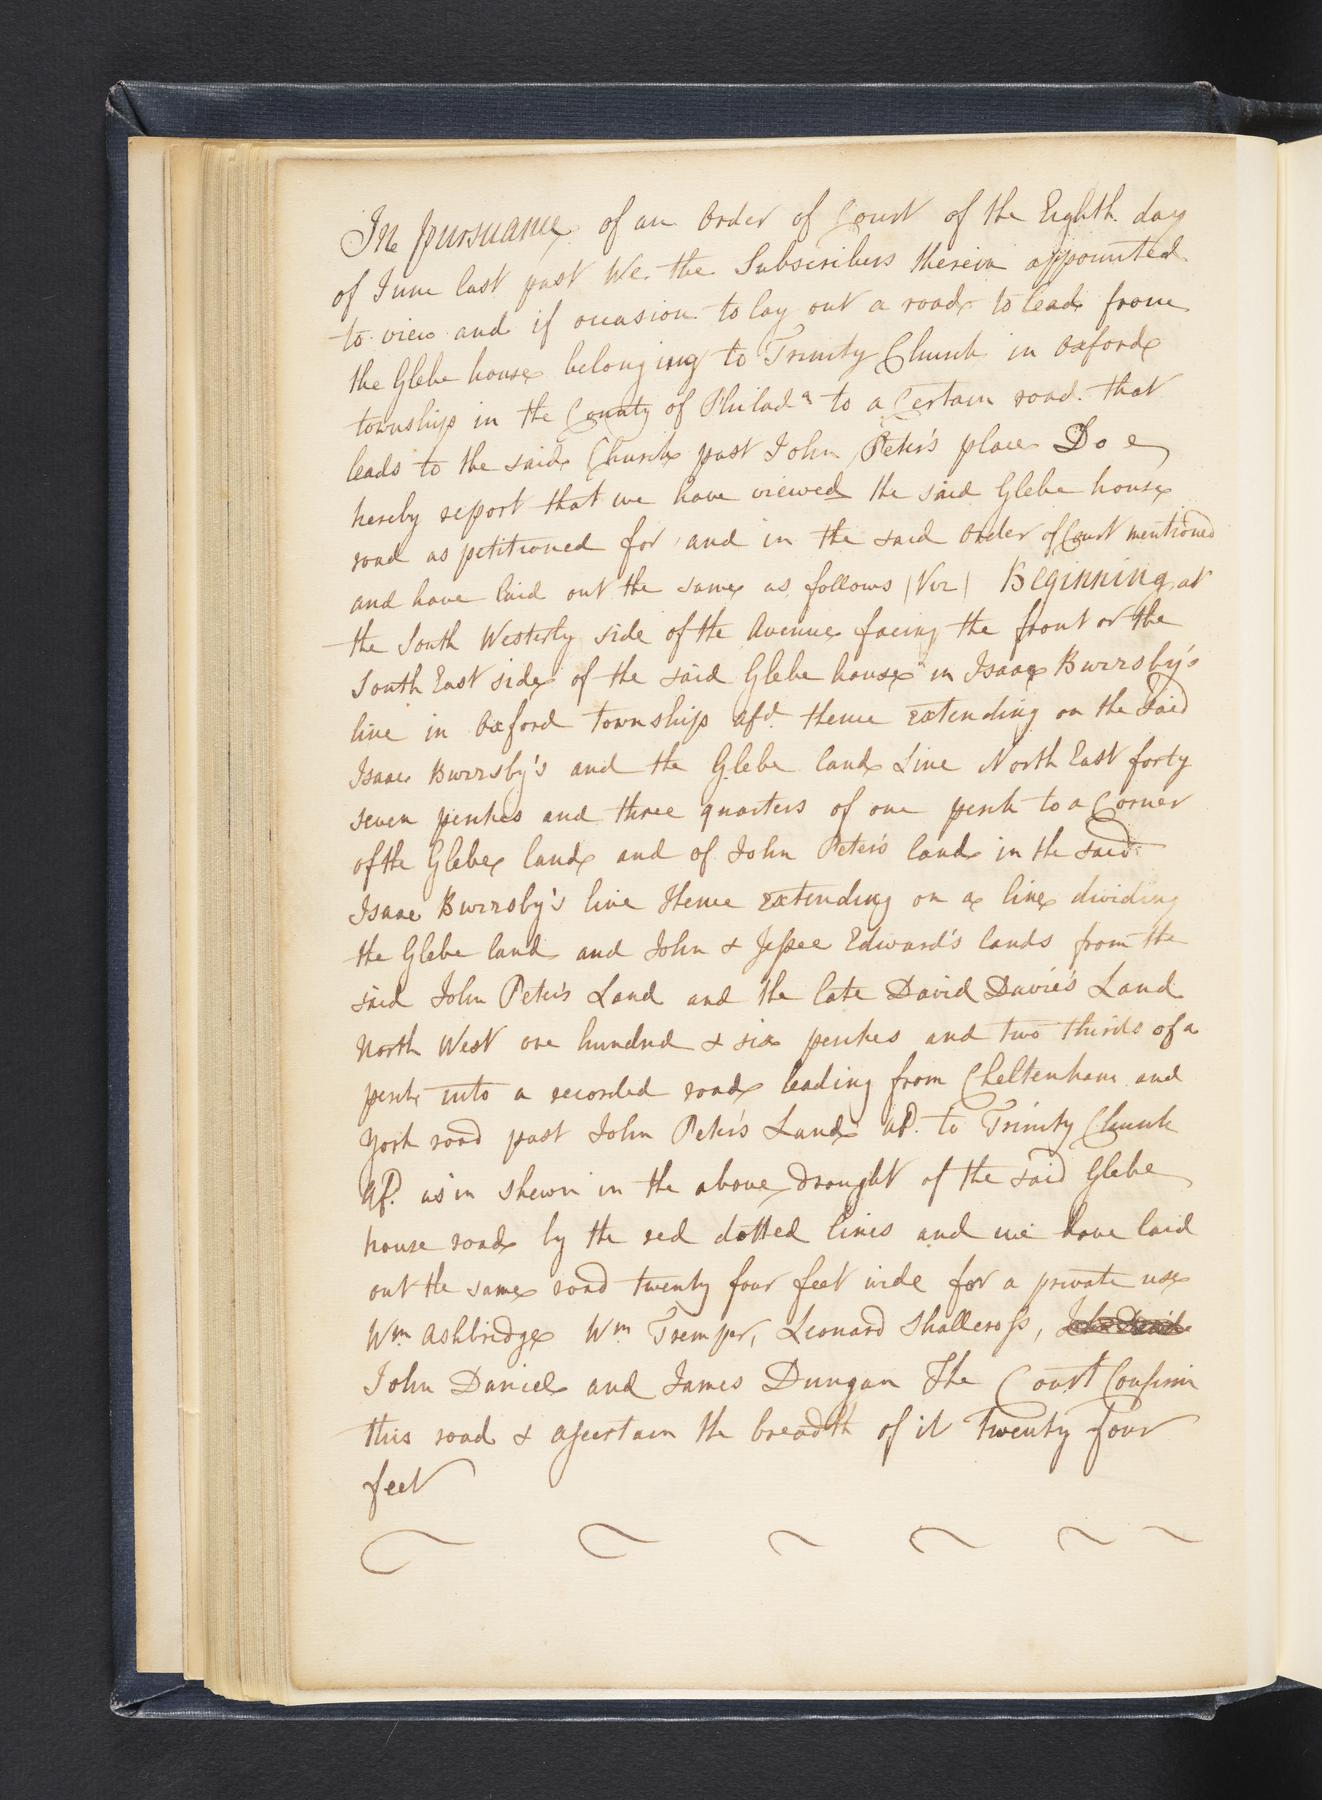 In pursuance of an Order of Court of the Eighth day
of June last past We the Subscribers therein appointed
to view and if occasion to lay out a road to lead from
the Glebe house belonging to Trinity Church in Oxford
township in the County of Philada to a Certain road that
leads to the said Church past John Peter's place Doe
hereby report that we have viewed the said Glebe house
road as petitioned for and in the said Order of Court mentioned
and have laid out the same as follows (Viz) Beginning at
the South Westerly side of the Avenue facing the front or the
South East side of the said Glebe house in Isaac Bwrrsby's
line in Oxford township afd. thence extending on the said
Isaac Bwrrsby's and the Glebe land Line North East forty
seven perches and three quarters of one perch to a Corner
of the Glebe land and of John Peter's land in the said
Isaac Bwrrsby's line thence extending on a line dividing
the Glebe land and John & Jessee Edward's lands from the
said John Peter's Land and the late David Davie's Land
North West one hundred & six perches and two thirds of a
perch into a recorded road leading from Cheltenham and
York road past John Peter's Land afd. to Trinity Church
afd. as in shewn in the above draught of the said Glebe
house road by the red dotted lines and we have laid
out the same road twenty four feet wide for a private use
Wm Ashbridge Wm Tremper, Leonard Shallcross,
John Daniel and James Dungan The Court Confirm
this road & assertain the breadth of it twenty four
feet